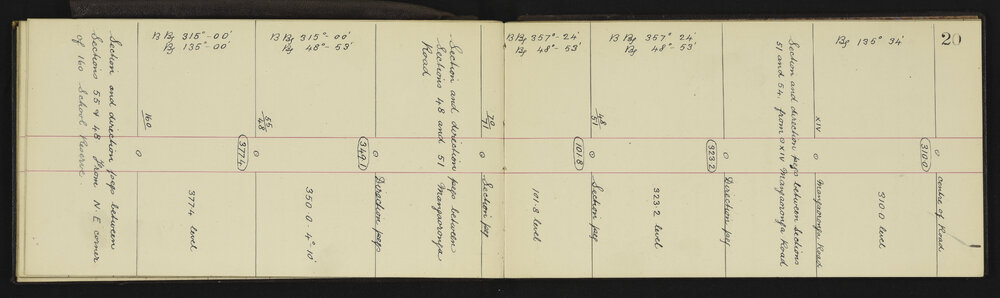 20
B Bg 315°-00'
Bg 135°-00'
B Bg 315°-00'
Bg 48°-53'
B Bg 357°-24'
Bg 48°-53'
B Bg 357° 24'
Bg 48°-53'
Bg 135° 34'
Section and direction pegs between
Sections 55 & 48 from N.E. corner
of 160 School Reserve.
160
○
377.4 level
(377.4)
55/48
○
350.0 4°-10'
(349.1)
○
Direction pegs
Section and direction pegs between
Sections 48 and 51 Mangaoronga
Road
○
Section peg
101.8 level
(101.8)
48/51
○
Section peg
323.2 level
(323.2)
○
Direction peg
Section and direction pegs between sections
51 and 54. from ○ XIV Mangaoronga Road
XIV
○
Mangaoronga Road
310.0 level
(310.0)
○
centre of Road